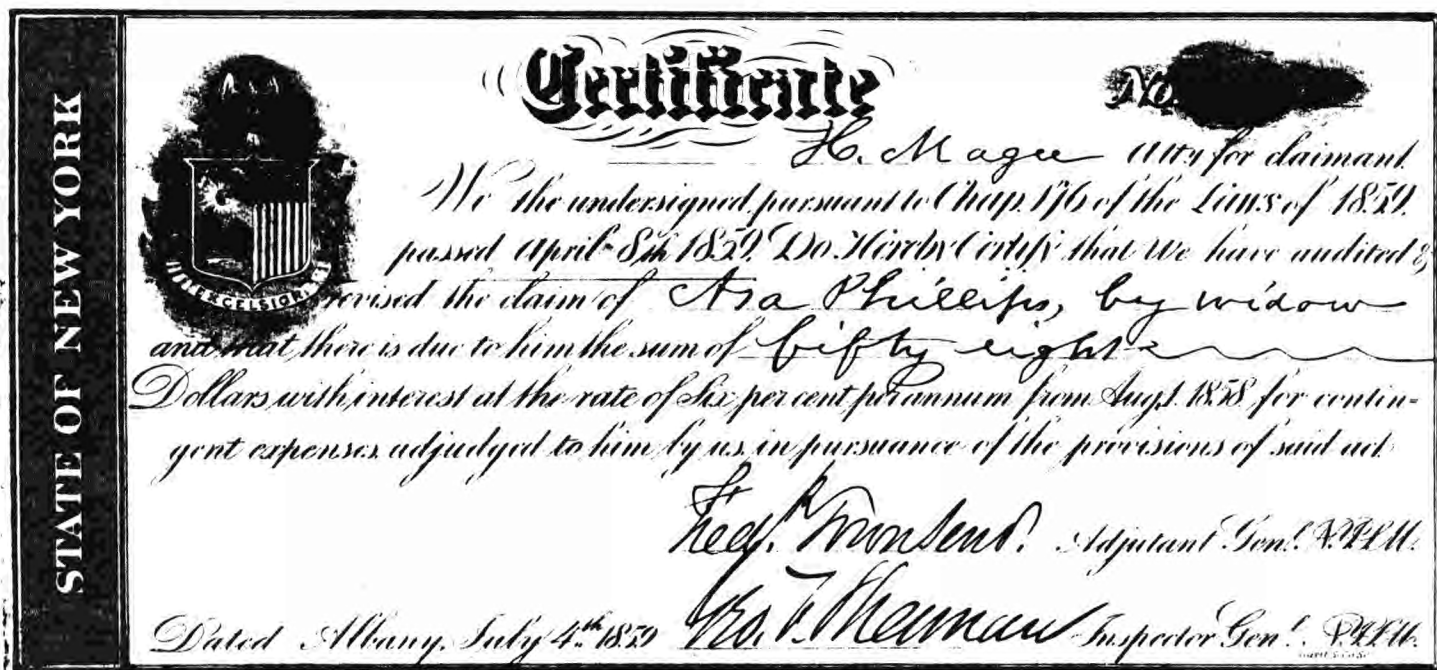 STATE OF NEW YORK
Certificate
No.
H. Magee Atty for claimant.
We the undersigned, pursuant to Chap. 176 of the Laws of 1859,
passed April 8th 1859, Do Hereby Certify that We have audited &
revised the claim of Asa Phillips, by widow
and that there is due to him the sum of fifty eight
Dollars with interest at the rate of Six per cent per annum from Aug. 1. 1858 for contin-
gent expenses adjudged to him by us in pursuance of the provisions of said act.
EXCELSIOR
Fred.k Townsend. Adjutant Genl.
Inspector Genl.
Dated Albany, July 4th 1859